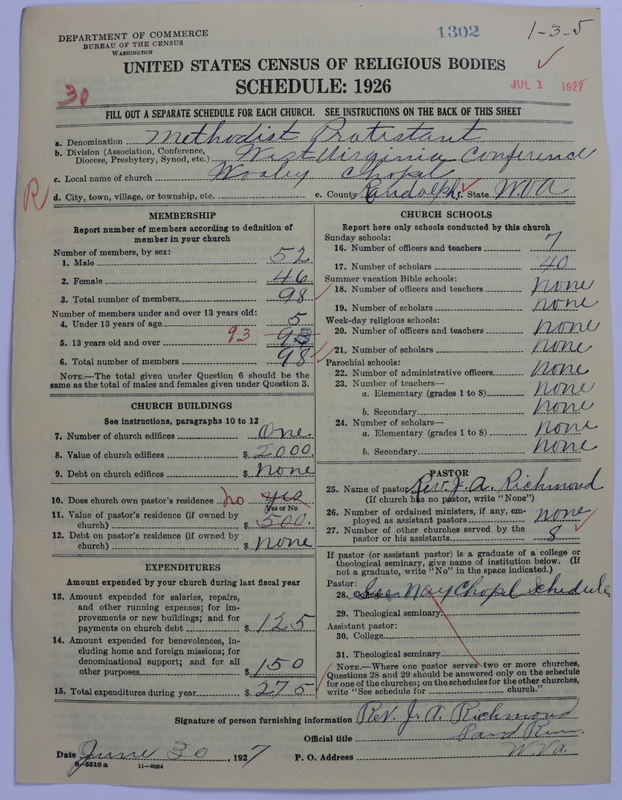 DEPARTMENT OF COMMERCE
BUREAU OF THE CENSUS
WASHINGTON
1302
1-3-5
UNITED STATES CENSUS OF RELIGIOUS BODIES
SCHEDULE: 1926
30
JUL 1 1927
FILL OUT A SEPARATE SCHEDULE FOR EACH CHURCH. SEE INSTRUCTIONS ON THE BACK OF THIS SHEET
a. Denomination Methodist Protestant
b. Division (Association, Conference, Diocese, Presbytery, Synod, etc.) West Virginia Conference
c. Local name of church Chapel
R
d. City, town, village, or township, etc. e. County Randolph f. State W.VA
MEMBERSHIP
Report number of members according to definition of member in your church
Number of members, by sex:
1. Male 52
2. Female 46
3. Total number of members 98
Number of members under and over 13 years old:
4. Under 13 years of age 5
5. 13 years old and over 93 93
6. Total number of members 98
NOTE.—The total given under Question 6 should be the same as the total of males and females given under Question 3.
CHURCH BUILDINGS
See instructions, paragraphs 10 to 12
7. Number of church edifices One
8. Value of church edifices $ 2000.
9. Debt on church edifices $ None
10. Does church own pastor's residence no yes
(Yes or No)
11. Value of pastor's residence (if owned by church) $ 500.
12. Debt on pastor's residence (if owned by church) $ None
EXPENDITURES
Amount expended by your church during last fiscal year
13. Amount expended for salaries, repairs, and other running expenses; for improvements or new buildings; and for payments on church debt $ 125
14. Amount expended for benevolences, including home and foreign missions; for denominational support; and for all other purposes $ 150
15. Total expenditures during year $ 275
CHURCH SCHOOLS
Report here only schools conducted by this church
Sunday schools:
16. Number of officers and teachers 7
17. Number of scholars 40
Summer vacation Bible schools:
18. Number of officers and teachers none
19. Number of scholars none
Week-day religious schools:
20. Number of officers and teachers none
21. Number of scholars none
Parochial schools:
22. Number of administrative officers none
23. Number of teachers—
a. Elementary (grades 1 to 8) none
b. Secondary none
24. Number of scholars—
a. Elementary (grades 1 to 8) none
b. Secondary none
PASTOR
25. Name of pastor Rev. J. A. Richmond
(If church has no pastor, write "None")
26. Number of ordained ministers, if any, employed as assistant pastors none
27. Number of other churches served by the pastor or his assistants 8
If pastor (or assistant pastor) is a graduate of a college or theological seminary, give name of institution below. (If not a graduate, write "No" in the space indicated.)
Pastor:
28. College See Nay Chapel Schedule
29. Theological seminary
Assistant pastor:
30. College
31. Theological seminary
NOTE.—Where one pastor serves two or more churches, Questions 28 and 29 should be answered only on the schedule for one of the churches; on the schedules for the other churches, write "See schedule for church."
Signature of person furnishing information Rev. J. A. Richmond
Official title
Run.
Date June 30, 1927
P. O. Address W.Va.
8-5518a 11-9034